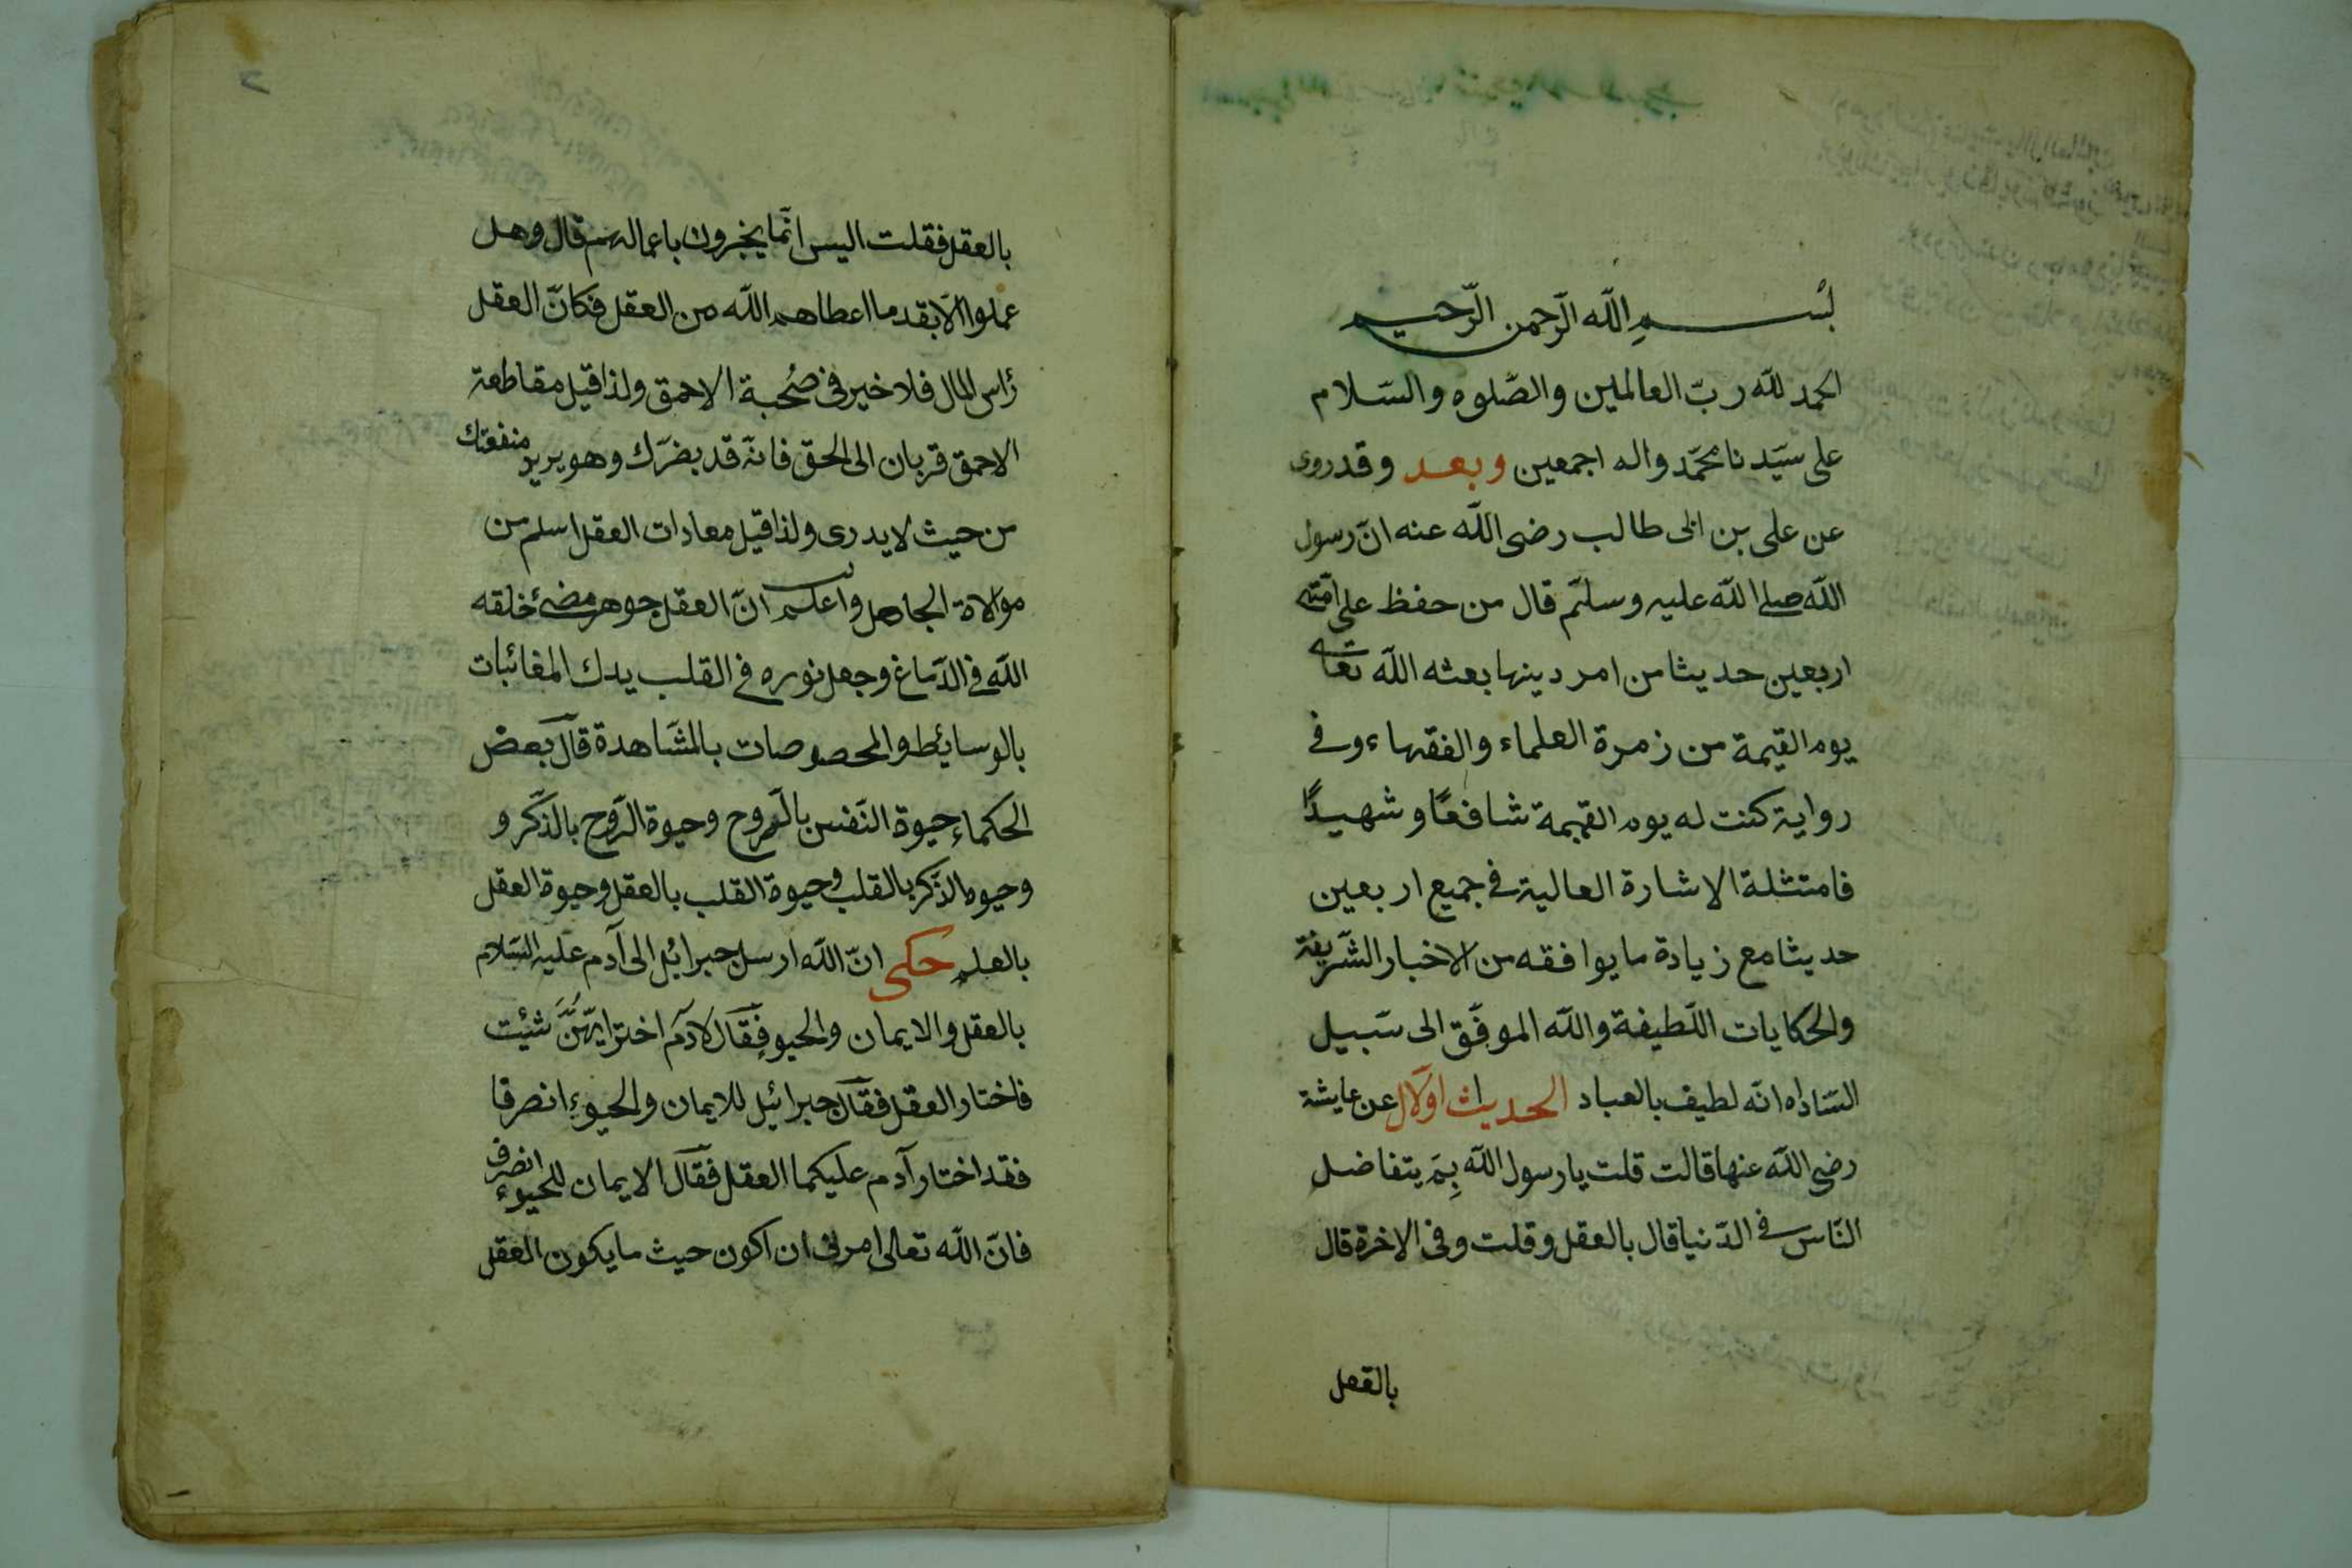 بسم الله الرّحمن الرّحيم
الحمد للّه ربّ العالمين والصّلوه والسّلام
على سيّدنا محمّد واله اجمعين وبعد وقد روى
عن على بن ابى طالب رضى اللّه عنه انّ رسول
اللّه صلى اللّه عليه وسلّم قال من حفظ على امّتى
اربعين حديثا من امر دينها بعثه اللّه تعالى
يوم القيمة من زمرة العلماء والفقهاء وفى
رواية كنت له يوم القيمة شافعًا وشهيدًا
فامتثلة الاشارة العالية فى جميع اربعين
حديثا مع زيادة ما يوافقه من الاخبار الشّريفة
والحكايات اللّطيفة واللّه الموفّق الى سَبيل
السّاداه انّه لطيف بالعباد الحديث اوّلال عن عايشة
رضى اللّه عنها قالت قلت يا رسول اللّه بِمَ يتفاضل
النّاس فى الدّنيا قال بالعقل وقلت وفى الاخرة قال
بالقعل
٢
بالعقل فقلت اليس انّما يخبرون باعمالهم قال وهل
عملوا الّا بقدر ما اعطاهم اللّه من العقل فكانّ العقل
رأس المال فلا خير فى صُحبة الاحمق ولذا قيل مقاطعة
الاحمق قربان الى الحق فانّه قد يضرّك وهو يريد منفعتك
من حيث لا يدرى ولذا قيل معادات العقل اسلم من
موالاة الجاهل واعلم انّ العقل جوهر مضئ خلقه
اللّه فى الدّماغ وجعل نوره فى القلب يدك المغائبات
بالوسايئط والمحصوصات بالمشاهدة قال بعض
الحكماء حيوة النّفس بالرّوح وحيوة الرّوح بالذّكر و
وحيوه الذّكر بالقلب وحيوة القلب بالعقل وحيوة العقل
بالعلم حكى انّ اللّه ارسل جبرائيل الى آدم عليه السّلام
بالعقل والايمان والحيوء فقال لادم اختر ايّهنّ شئت
فاختار العقل فقال جبرائيل للايمان والحيوء انصرفا
فقد اختار آدم عليكما العقل فقال الايمان للحيوء انصرف
فانّ اللّه تعالى امرنى ان اكون حيث ما يكون العقل